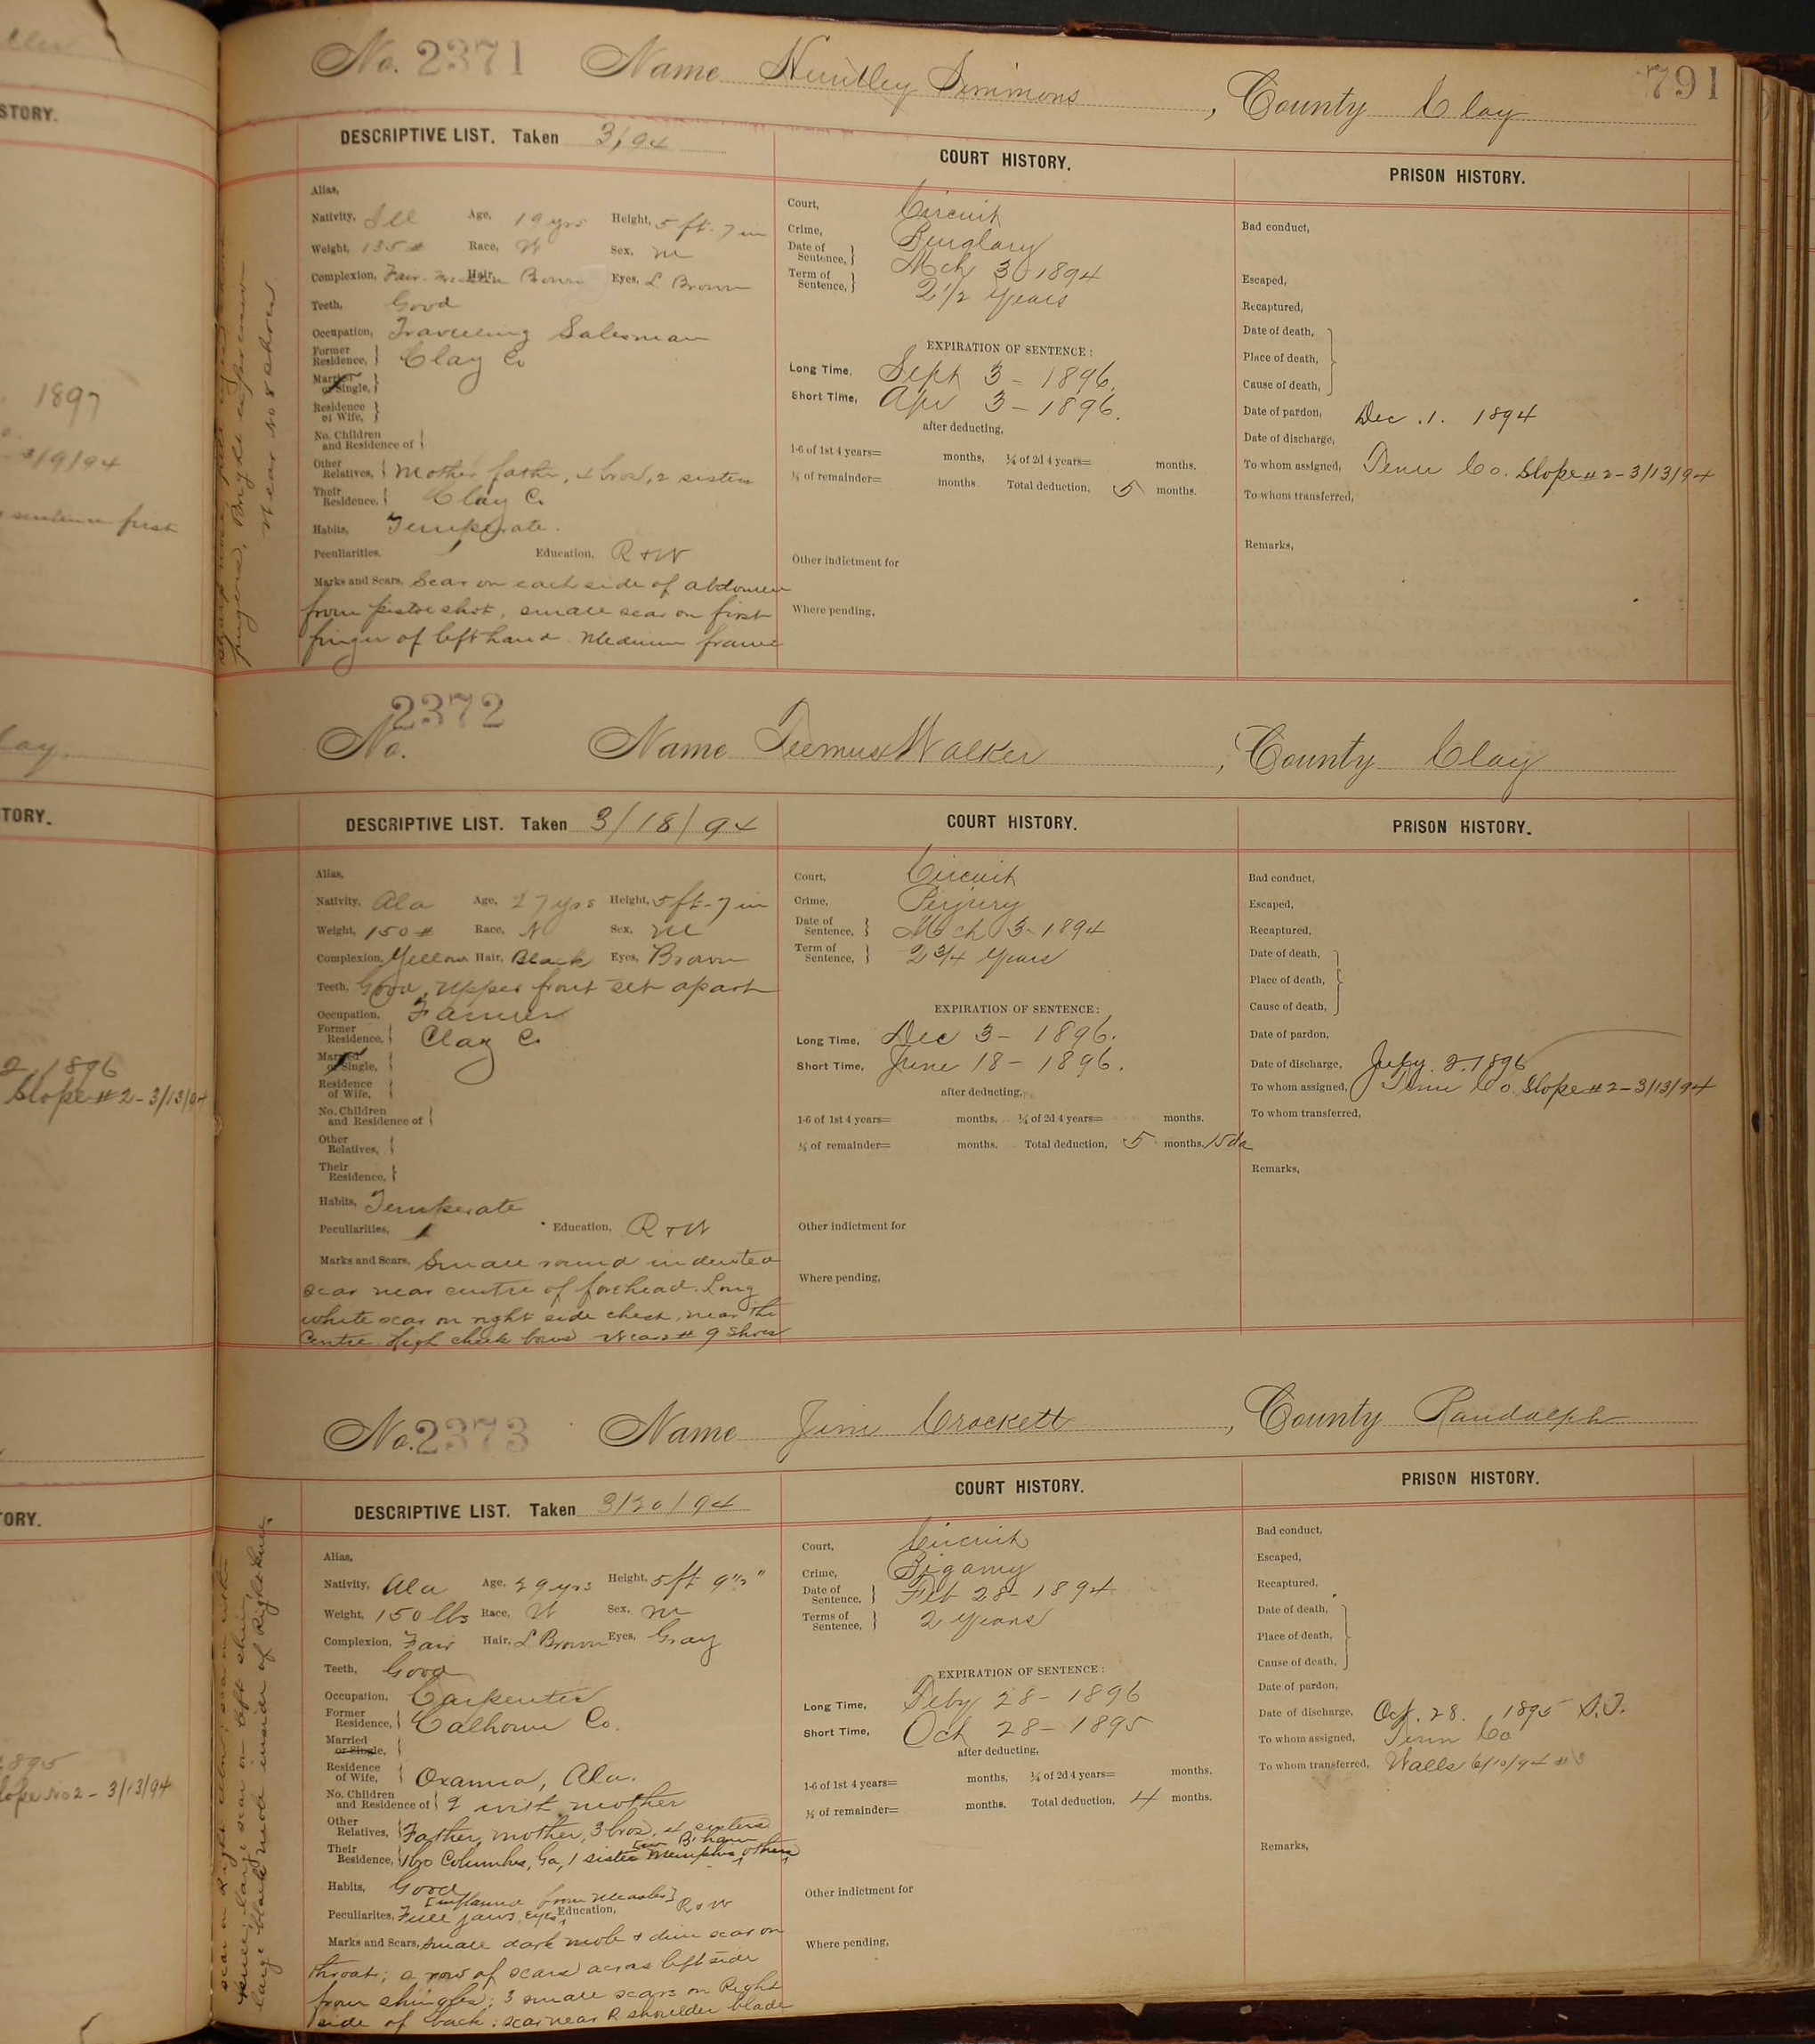 791
No. 2371 Name Huntley Simmons, County Clay
DESCRIPTIVE LIST. Taken 3/94
Alias,
Nativity, Ill Age, 19 yrs Height, 5 ft. 7 in
Weight, 135 # Race, W Sex, M
Complexion, Fair Hair, Brown Eyes, L Brown
Teeth, Good
Occupation, Traveling Salesman
Former Residence, Clay Co
Married or Single,
Residence of Wife,
No. Children and Residence of
Other Relatives, Mother, father, 4 bros, 2 sisters
Their Residence, Clay Co.
Habits, Temperate.
Peculiarities, Education, R & W
Marks and Scars, Scar on each side of abdomen
from pistol shot, small scar on first
finger of left hand. Medium frame
Wear No 8 shoes
COURT HISTORY.
Court, Circuit
Crime, Burglary
Date of Sentence, Mch 3 1894
Term of Sentence, 2 1/2 Years
EXPIRATION OF SENTENCE:
Long Time, Sept 3 - 1896.
Short Time, Apr 3 - 1896.
after deducting,
1-6 of 1st 4 years= months, ¼ of 2d 4 years= months.
⅓ of remainder= months. Total deduction, 5 months.
Other indictment for
Where pending,
PRISON HISTORY.
Bad conduct,
Escaped,
Recaptured,
Date of death,
Place of death,
Cause of death,
Date of pardon, Dec. 1. 1894
Date of discharge,
To whom assigned, Tenn Co. Slope #2 - 3/13/94
To whom transferred,
Remarks,
No. 2372 Name Walker, County Clay
DESCRIPTIVE LIST. Taken 3/18/94
Alias,
Nativity, Ala Age, 27 yrs Height, 5 ft - 7 in
Weight, 150 # Race, N Sex, M
Complexion, Yellow Hair, Black Eyes, Brown
Teeth, Good, Upper front set apart
Occupation, Farmer
Former Residence, Clay Co
Married or Single,
Residence of Wife,
No. Children and Residence of
Other Relatives,
Their Residence,
Habits, Temperate
Peculiarities, Education, R & W
Marks and Scars, Small round indented
scar near centre of forehead. Long
white scar on right side chest, near the
Centre. High cheek bones Wears # 9 Shoes
COURT HISTORY.
Court, Circuit
Crime, Perjury
Date of Sentence, Mch 3 - 1894
Term of Sentence, 2 3/4 Years
EXPIRATION OF SENTENCE:
Long Time, Dec 3 - 1896.
Short Time, June 18 - 1896.
after deducting,
1-6 of 1st 4 years= months, ¼ of 2d 4 years= months.
⅓ of remainder= months. Total deduction, 5 months. 15 da
Other indictment for
Where pending,
PRISON HISTORY.
Bad conduct,
Escaped,
Recaptured,
Date of death,
Place of death,
Cause of death,
Date of pardon,
Date of discharge, July. 2. 1896
To whom assigned, Tenn Co. Slope #2 - 3/13/94
To whom transferred,
Remarks,
No. 2373 Name Jim Crockett, County Randolph
DESCRIPTIVE LIST. Taken 3/20/94
Alias,
Nativity, Ala Age, 29 yrs Height, 5 ft 9 1/2"
Weight, 150 lbs Race, W Sex, M
Complexion, Fair Hair, L Brown Eyes, Gray
Teeth, Good
Occupation, Carpenter
Former Residence, Calhoun Co.
Married or Single,
Residence of Wife, Oxanna, Ala.
No. Children and Residence of 2 with mother
Other Relatives, Father, mother, 3 bros, 4 sisters
Their Residence, 1 bro Columbus, Ga, 1 sister Memphis, others in B'ham
Habits, Good
Peculiarites, Full jaws, eyes [inflamed from measles] Education, R & W
Marks and Scars, small dark mole & dim scar on
throat; a row of scars across left side
from shingles; 3 small scars on Right
side of back; scar near R shoulder blade
knee; large scar on left shin,
large black mole inside of Right knee.
COURT HISTORY.
Court, Circuit
Crime, Bigamy
Date of Sentence, Feb 28 - 1894
Terms of Sentence, 2 Years
EXPIRATION OF SENTENCE:
Long Time, Feby 28 - 1896
Short Time, Oct 28 - 1895
after deducting,
1-6 of 1st 4 years= months, ¼ of 2d 4 years= months.
⅓ of remainder= months. Total deduction, 4 months.
Other indictment for
Where pending,
PRISON HISTORY.
Bad conduct,
Escaped,
Recaptured,
Date of death,
Place of death,
Cause of death,
Date of pardon,
Date of discharge, Oct. 28. 1895 S.T.
To whom assigned, Tenn Co
To whom transferred, Walls 6/10/94
Remarks,
STORY.
1897
3/9/94
sentence first
TORY.
1896
Slope #2 - 3/13/94
TORY.
1895
Slope No 2 - 3/13/94